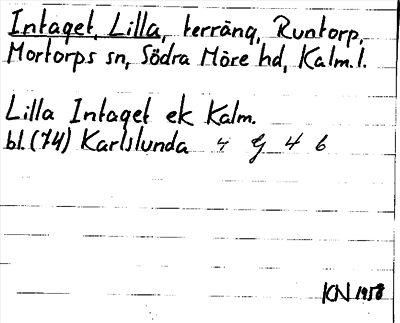 Intaget, Lilla, terräng, Runtorp,
Mortorps sn, Södra Möre hd, Kalm. l.
Lilla Intaget ek Kalm.
bl. (74) Karlslunda 4 G 4 6
KN 1958